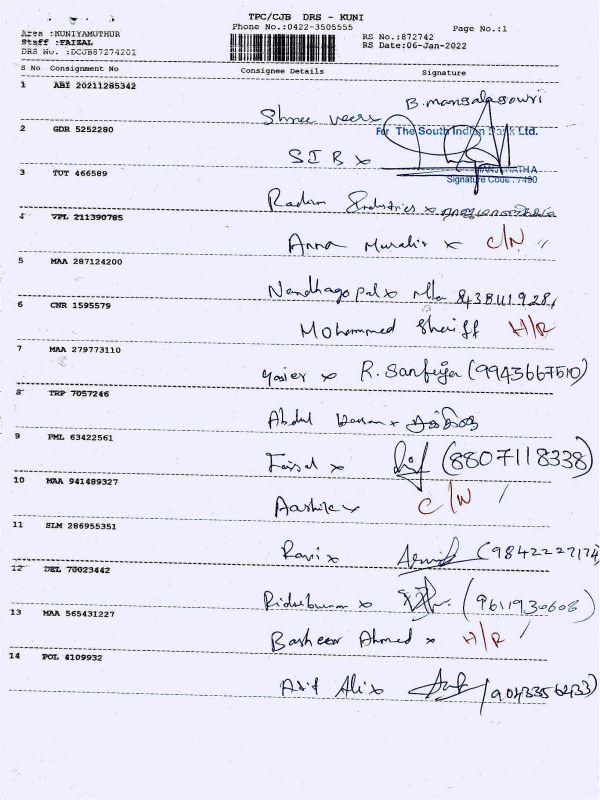 TPC/CJB DRS - KUNI
Area :KUNIYAMUTHUR Phone No.:0422-3505555 Page No.:1
Staff :FAIZAL RS No.:872742
DRS No. :DCJB87274201 RS Date:06-Jan-2022
S No Consignment No Consignee Details Signature
1 ABI 20211285342
Shree B.mangalagowri
2 GDR 5252280 For The South Indian Bank Ltd.
SIB x
3 TUT 466589 Signature Code : 7490
Radium Industries x
4 VPL 211390785
Anna Murali x C/N
5 MAA 287124200
Nandhagopal x
6 CNR 1595579
Mohammed Sheriff H/R
7 MAA 279773110
x R. (9943667510)
8 TRP 7057246
Abdul x
9 PML 63422561
Faisal x (8807118338)
10 MAA 941489327
C/N
11 SLM 286955351
Ravi x (9842227174
12 DEL 70023442
x (9611930608)
13 MAA 565431227
Basheer Ahmed x H/R
14 POL 4109932
Asif Ali x